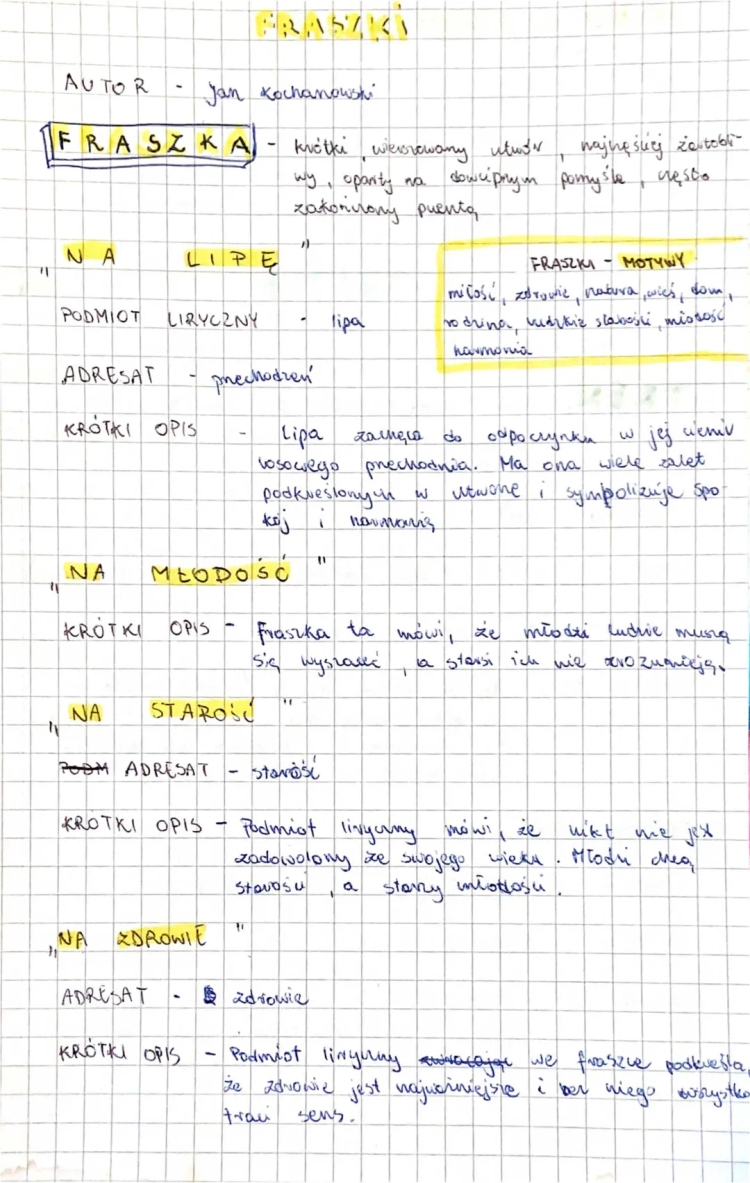 FRASZKI
AUTOR - Jan Kochanowski
FRASZKA - krótki, wierszowany utwór, najczęściej żartobli-
wy, oparty na dowcipnym pomyśle, często
zakończony puentą
„NA LIPĘ"
FRASZKI - MOTYWY
miłość, zdrowie, natura, wieś, dom,
rodzina, ludzkie słabości, młodość
harmonia
PODMIOT LIRYCZNY - lipa
ADRESAT - przechodzeń
KRÓTKI OPIS - Lipa zachęca do odpoczynku w jej cieniu
losowego przechodnia. Ma ona wiele zalet
podkreślonych w utworze i sympolizuje spo-
kój i harmonię
„NA MŁODOŚĆ"
KRÓTKI OPIS - Fraszka ta mówi, że młodzi ludzie muszą
się wyszaleć, a starsi ich nie zrozumieją.
„NA STAROŚĆ"
PODM ADRESAT - starość
KRÓTKI OPIS - Podmiot liryczny mówi, że nikt nie jest
zadowolony ze swojego wieku. Młodzi chcą
starości, a starzy młodości.
„NA ZDROWIE"
ADRESAT - zdrowie
KRÓTKI OPIS - Podmiot liryczny zwracając we fraszce podkreśla,
że zdrowie jest najważniejsze i bez niego wszystko
traci sens.